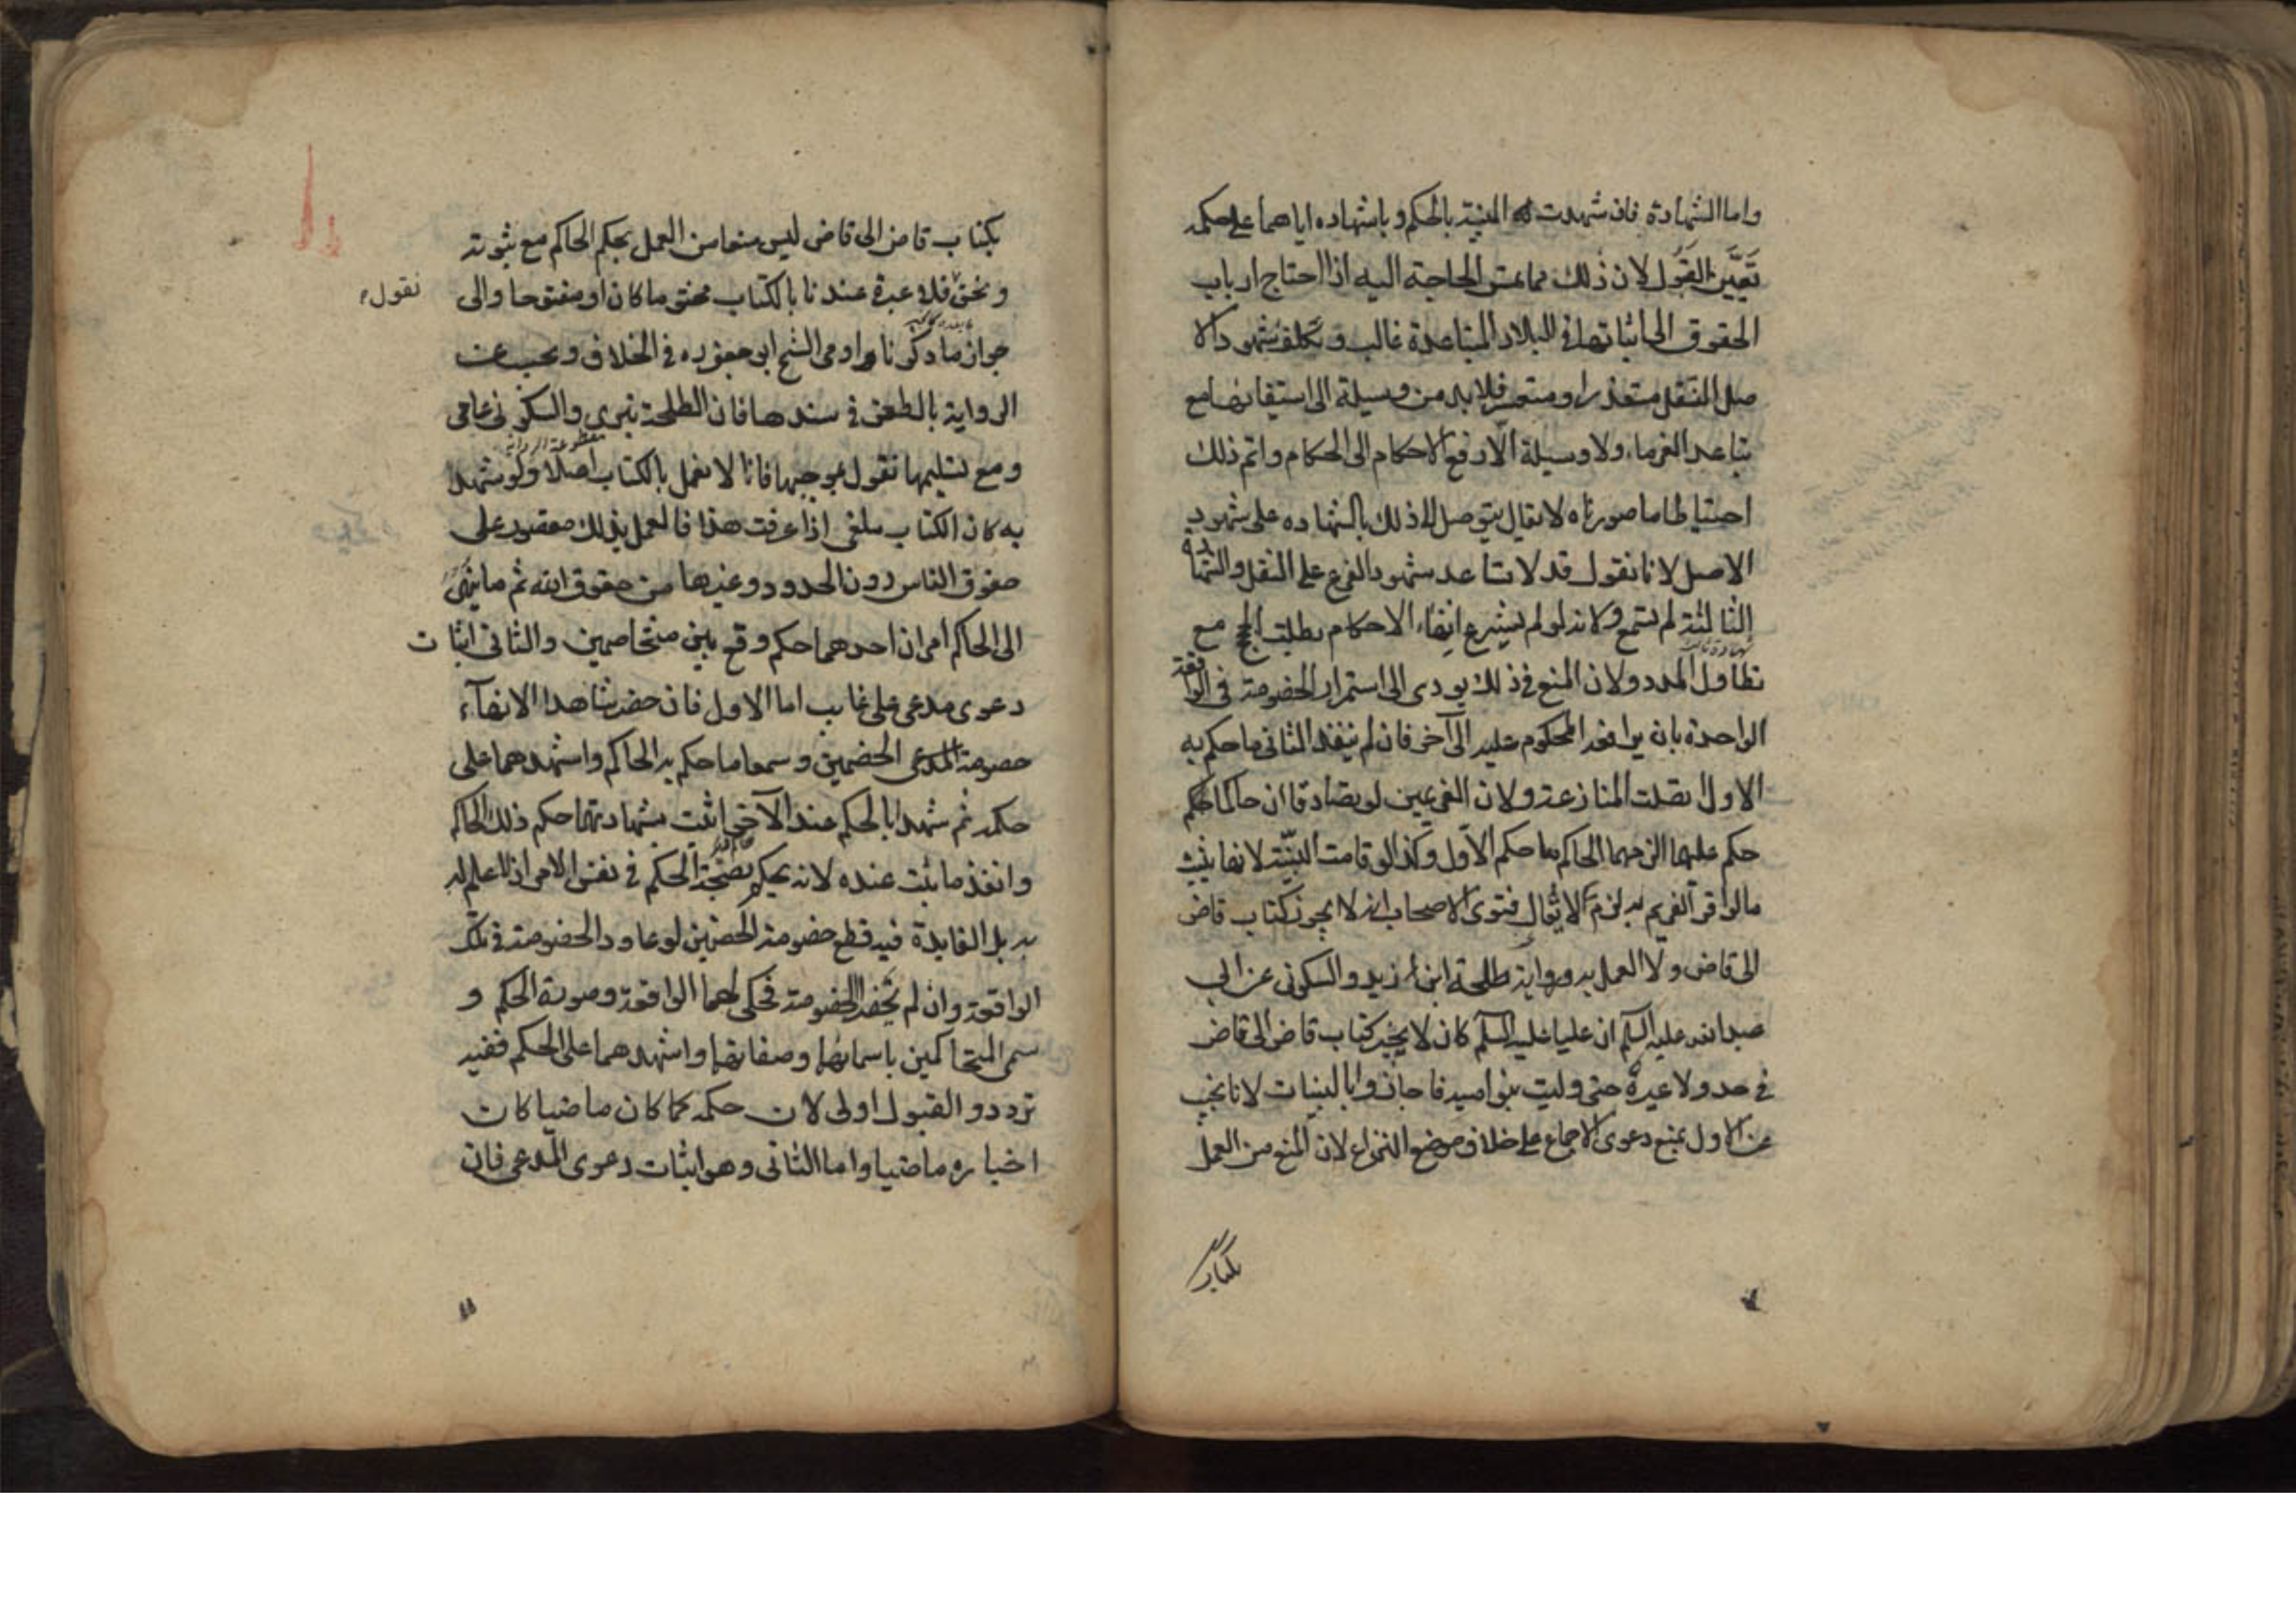 واما الشهادة فان شهدت البينة بالحكم وباشهاده اياهما على حكمه
تعيّن القبول لان ذلك مما تمس الحاجة اليه اذا احتاج ارباب
الحقوق الى اثباتها في البلاد المتباعدة غالب وتكليف شهود الا
صل التنقل متعذر او متعسر فلا بد من وسيلة الى استيفائها مع
تباعد الغرماء ولا وسيلة الا رفع الاحكام الى الحكام واتم ذلك
احتياطا ما صورناه لا يقال يتوصل الى ذلك بالشهاده على شهود
الاصل لانا نقول قد لا تساعد شهود الفرع على التنقل والشهادة
الثالثة لم تسمع ولانه لو لم يشرع انهاء الاحكام بطلت الحجج مع
تطاول المدد ولان المنع في ذلك يودى الى استمرار الخصومة في الواقعة
الواحدة بان يرافعه المحكوم عليه الى آخر فان لم ينفذ الثانى ما حكم به
الاول اتصلت المنازعة ولان الغريمين لو تصادقا ان حاكما
حكم عليهما الزمهما الحاكم ما حكم الاول وكذا لو قامت البينة لانها تثبت
ما لو اقر الغريم به لزم لا يقال فتوى الاصحاب انه لا يجوز كتاب قاض
الى قاض ولا العمل به ورواية طلحة ابن زيد والسكونى عن ابى
عبدالله عليه السلم ان عليا عليه السلم كان لا يجيز كتاب قاض الى قاض
في حد ولا غيره حتى وليت بنو اميه فاجازوا بالبينات لانا نجيب
عن الاول بمنع دعوى الاجماع على خلاف موضع النزاع لان المنع من العمل
بكتاب
بكتاب قاض الى قاض ليس منعا من العمل بحكم الحاكم مع ثبوته
ونحن فلا عبرة عندنا بالكتاب مختوما كان او مفتوحا والى
نقول
جواز ما ذكرنا اومى الشيخ ابى جعفر ره في الخلاف ونجيب عن
الرواية بالطعن في سندها فان الطلحة بترى والسكونى عامى
ومع تسليمها نقول بموجبها فانا لا نعمل بالكتاب اصلا ولو شهد
به كان الكتاب ملغى اذا عرفت هذا فالعمل بذلك مقصور على
حقوق الناس دون الحدود وغيرها من حقوق الله ثم ما ينهى
الى الحاكم امران احدهما حكم وقع بين متخاصمين والثانى اثبات
دعوى مدعى على غايب اما الاول فان حضر شاهدا الانهآء
خصومة الخصمين وسمعا ما حكم به الحاكم واشهدهما على
حكمه ثم شهدا بالحكم عند الآخر اثبت بشهادتهما حكم ذلك الحاكم
وانفذ ما ثبت عنده لانه يحكم بصحة الحكم في نفس الامر اذ لا علم له
به بل الفايدة فيه قطع خصومة الخصمين لو عاودا الخصومة في تلك
الواقعة وان لم يحضرا الخصومة فحكى لهما الواقعة وصورة الحكم و
سمى المتحاكمين باسمائهما وصفاتهما واشهدهما على الحكم ففيه
تردد والقبول اولى لان حكمه كما كان ماضيا كان
اخباره ماضيا واما الثانى وهو اثبات دعوى المدعى فان